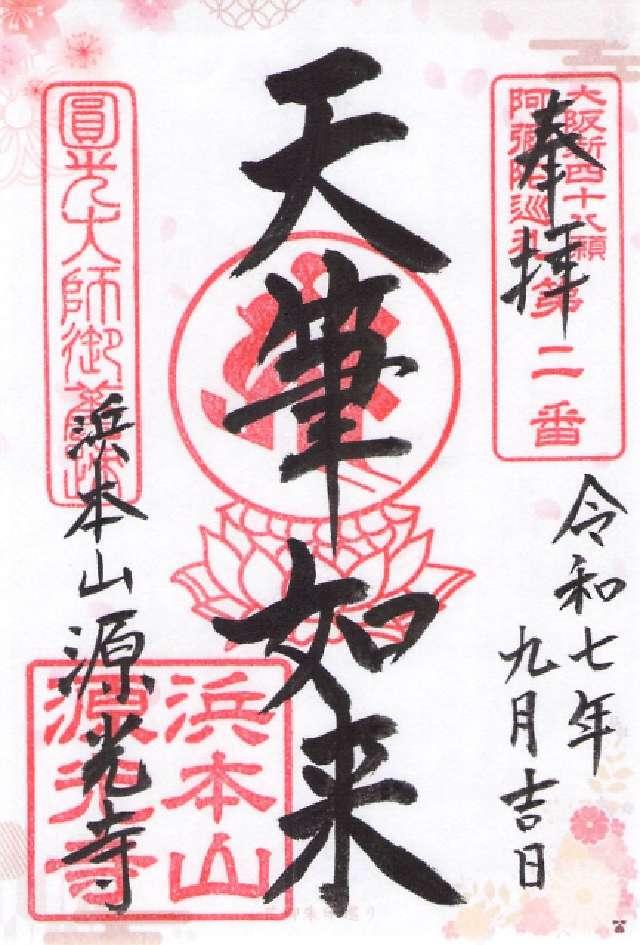 奉拝
大阪新四十八願
阿彌陀巡礼
第二番
令和七年
九月吉日
天筆如来
圓光大師御舊跡
浜本山源光寺
浜本山
源光寺